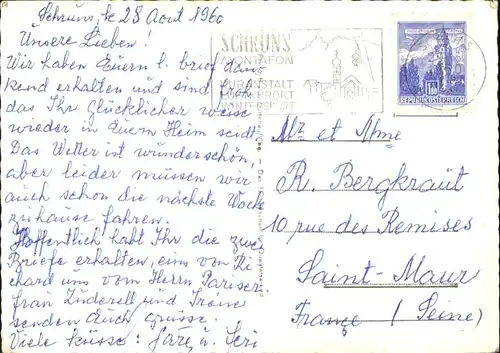 Schruns, le 28 Aout 1960
Unsere Lieben!
Wir haben Euern l. brief dan-
kend erhalten und sind froh
das Ihr glücklicher weise
wieder in Euern Heim seid.
Das Wetter ist wunderschön,
aber leider müssen wir
auch schon die nächste Woche
zuhause fahren.
Hoffentlich habt Ihr die zwei
Briefe erhalten, eins vom Ri
chard uns vom Herrn Pariser.
frau und Irène
senden auch grüsse.
Viele küsse: u.
SCHRUNS
MONTAFON
KURANSTALT
LUFTKURORT
WINTERSPORT
REPUBLIK ÖSTERREICH
Mr et Mme
R. Bergkraut
10 rue des Remises
Saint-Maur
France (Seine)